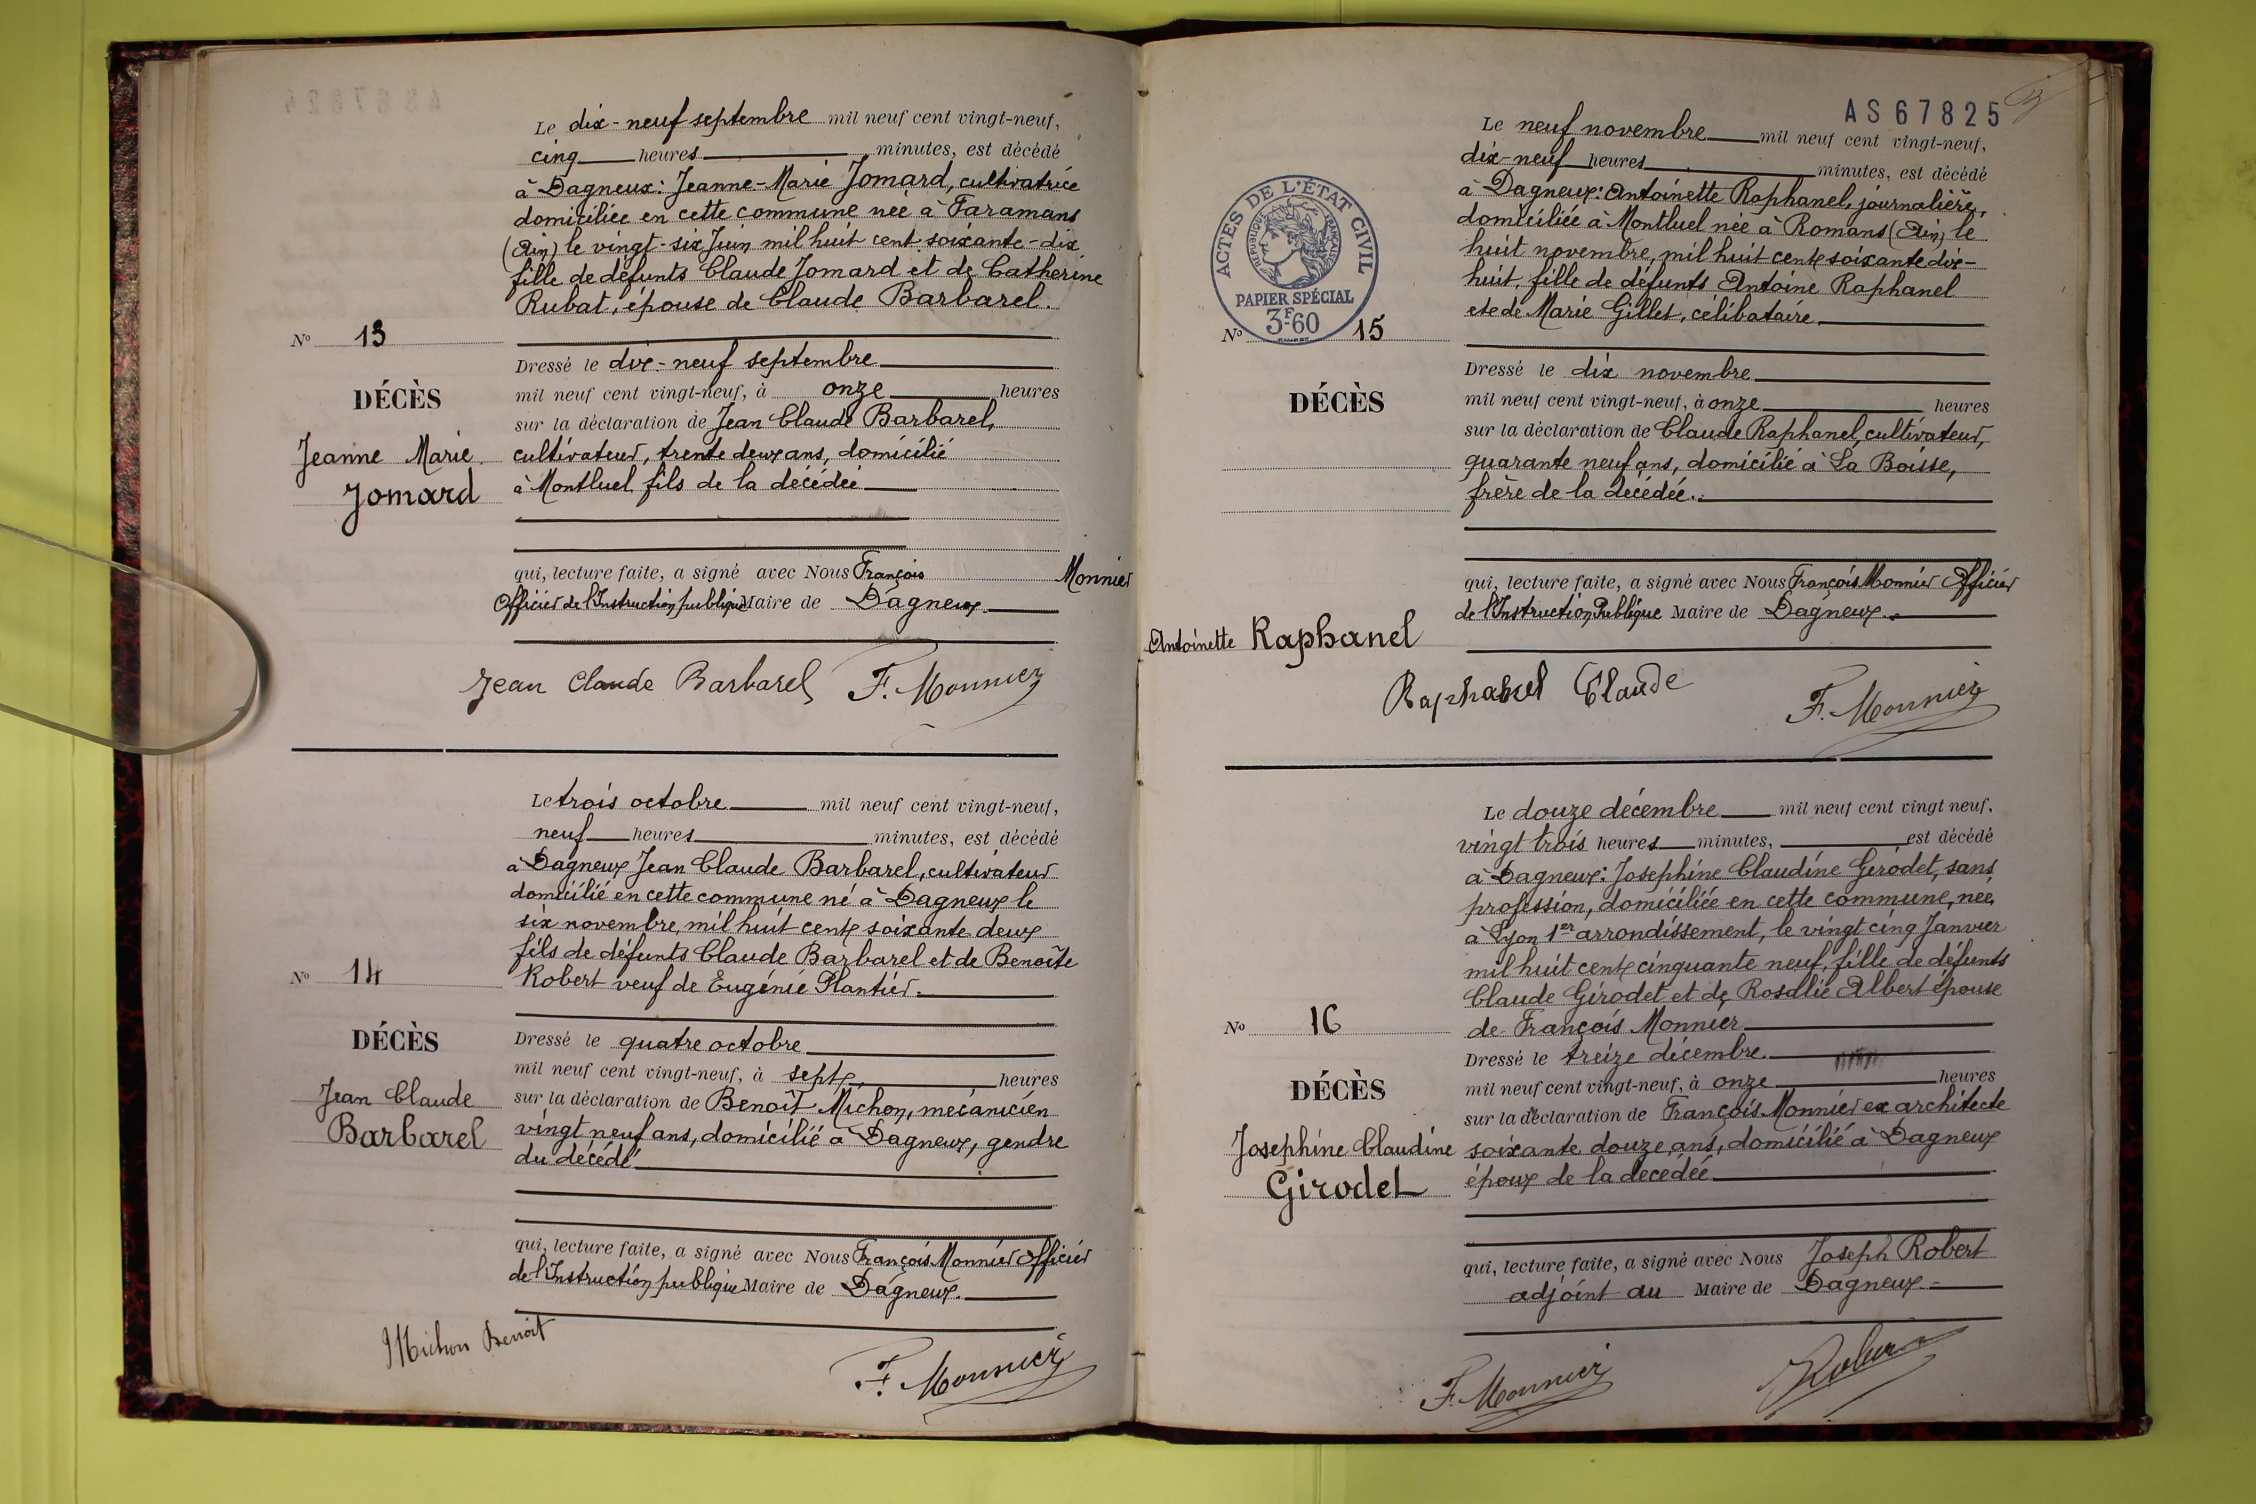 Le dix-neuf septembre mil neuf cent vingt-neuf,
cinq heures minutes, est décédé
à Dagneux: Jeanne-Marie Jomard, cultivatrice
domiciliée en cette commune née à Faramans
(Ain) le vingt-six Juin mil huit cent soixante-dix
fille de défunts Claude Jomard et de Catherine
Rubat, épouse de Claude Barbarel.
No 13
DÉCÈS
Jeanne Marie
Jomard
Dressé le dix-neuf septembre
mil neuf cent vingt-neuf, à onze heures
sur la déclaration de Jean Claude Barbarel,
cultivateur, trente deux ans, domicilié
à Montluel fils de la décédée
qui, lecture faite, a signé avec Nous François Monnier
Officier de l'Instruction publique Maire de Dagneux.
Jean Claude Barbarel F. Monnier
Le trois octobre mil neuf cent vingt-neuf,
neuf heures minutes, est décédé
à Dagneux Jean Claude Barbarel, cultivateur
domicilié en cette commune né à Dagneux le
six novembre, mil huit cent soixante deux
fils de défunts Claude Barbarel et de Benoîte
Robert veuf de Eugénie Plantier.
No 14
DÉCÈS
Jean Claude
Barbarel
Dressé le quatre octobre
mil neuf cent vingt-neuf, à sept heures
sur la déclaration de Benoît Michon, mécanicien
vingt neuf ans, domicilié à Dagneux, gendre
du décédé
qui, lecture faite, a signé avec Nous François Monnier Officier
de l'Instruction publique Maire de Dagneux.
Michon Benoit
F. Monnier
AS 67825
Le neuf novembre mil neuf cent vingt-neuf,
dix-neuf heures minutes, est décédé
à Dagneux: Antoinette Raphanel, journalière,
domiciliée à Montluel née à Romans (Ain) le
huit novembre, mil huit cent soixante dix-
huit, fille de défunts Antoine Raphanel
et de Marie Gillet, célibataire
ACTES DE L'ÉTAT CIVIL
RÉPUBLIQUE FRANÇAISE
PAPIER SPÉCIAL
3F.60
No 15
DÉCÈS
Antoinette Raphanel
Dressé le dix novembre
mil neuf cent vingt-neuf, à onze heures
sur la déclaration de Claude Raphanel, cultivateur,
quarante neuf ans, domicilié à La Boisse,
frère de la décédée.
qui, lecture faite, a signé avec Nous François Monnier Officier
de l'Instruction Publique Maire de Dagneux.
Raphanel Claude
F. Monnier
Le douze décembre mil neuf cent vingt neuf,
vingt trois heures minutes, est décédé
à Dagneux: Josephine Claudine Girodet, sans
profession, domiciliée en cette commune, née,
à Lyon 1er arrondissement, le vingt cinq Janvier
mil huit cent cinquante neuf, fille de défunts
Claude Girodet et de Rosalie Albert épouse
de François Monnier
No 16
DÉCÈS
Josephine Claudine
Girodet
Dressé le treize décembre
mil neuf cent vingt-neuf, à onze heures
sur la déclaration de François Monnier ex architecte
soixante douze ans, domicilié à Dagneux
époux de la decedée
qui, lecture faite, a signé avec Nous Joseph Robert
adjoint au Maire de Dagneux.
F. Monnier
Robert